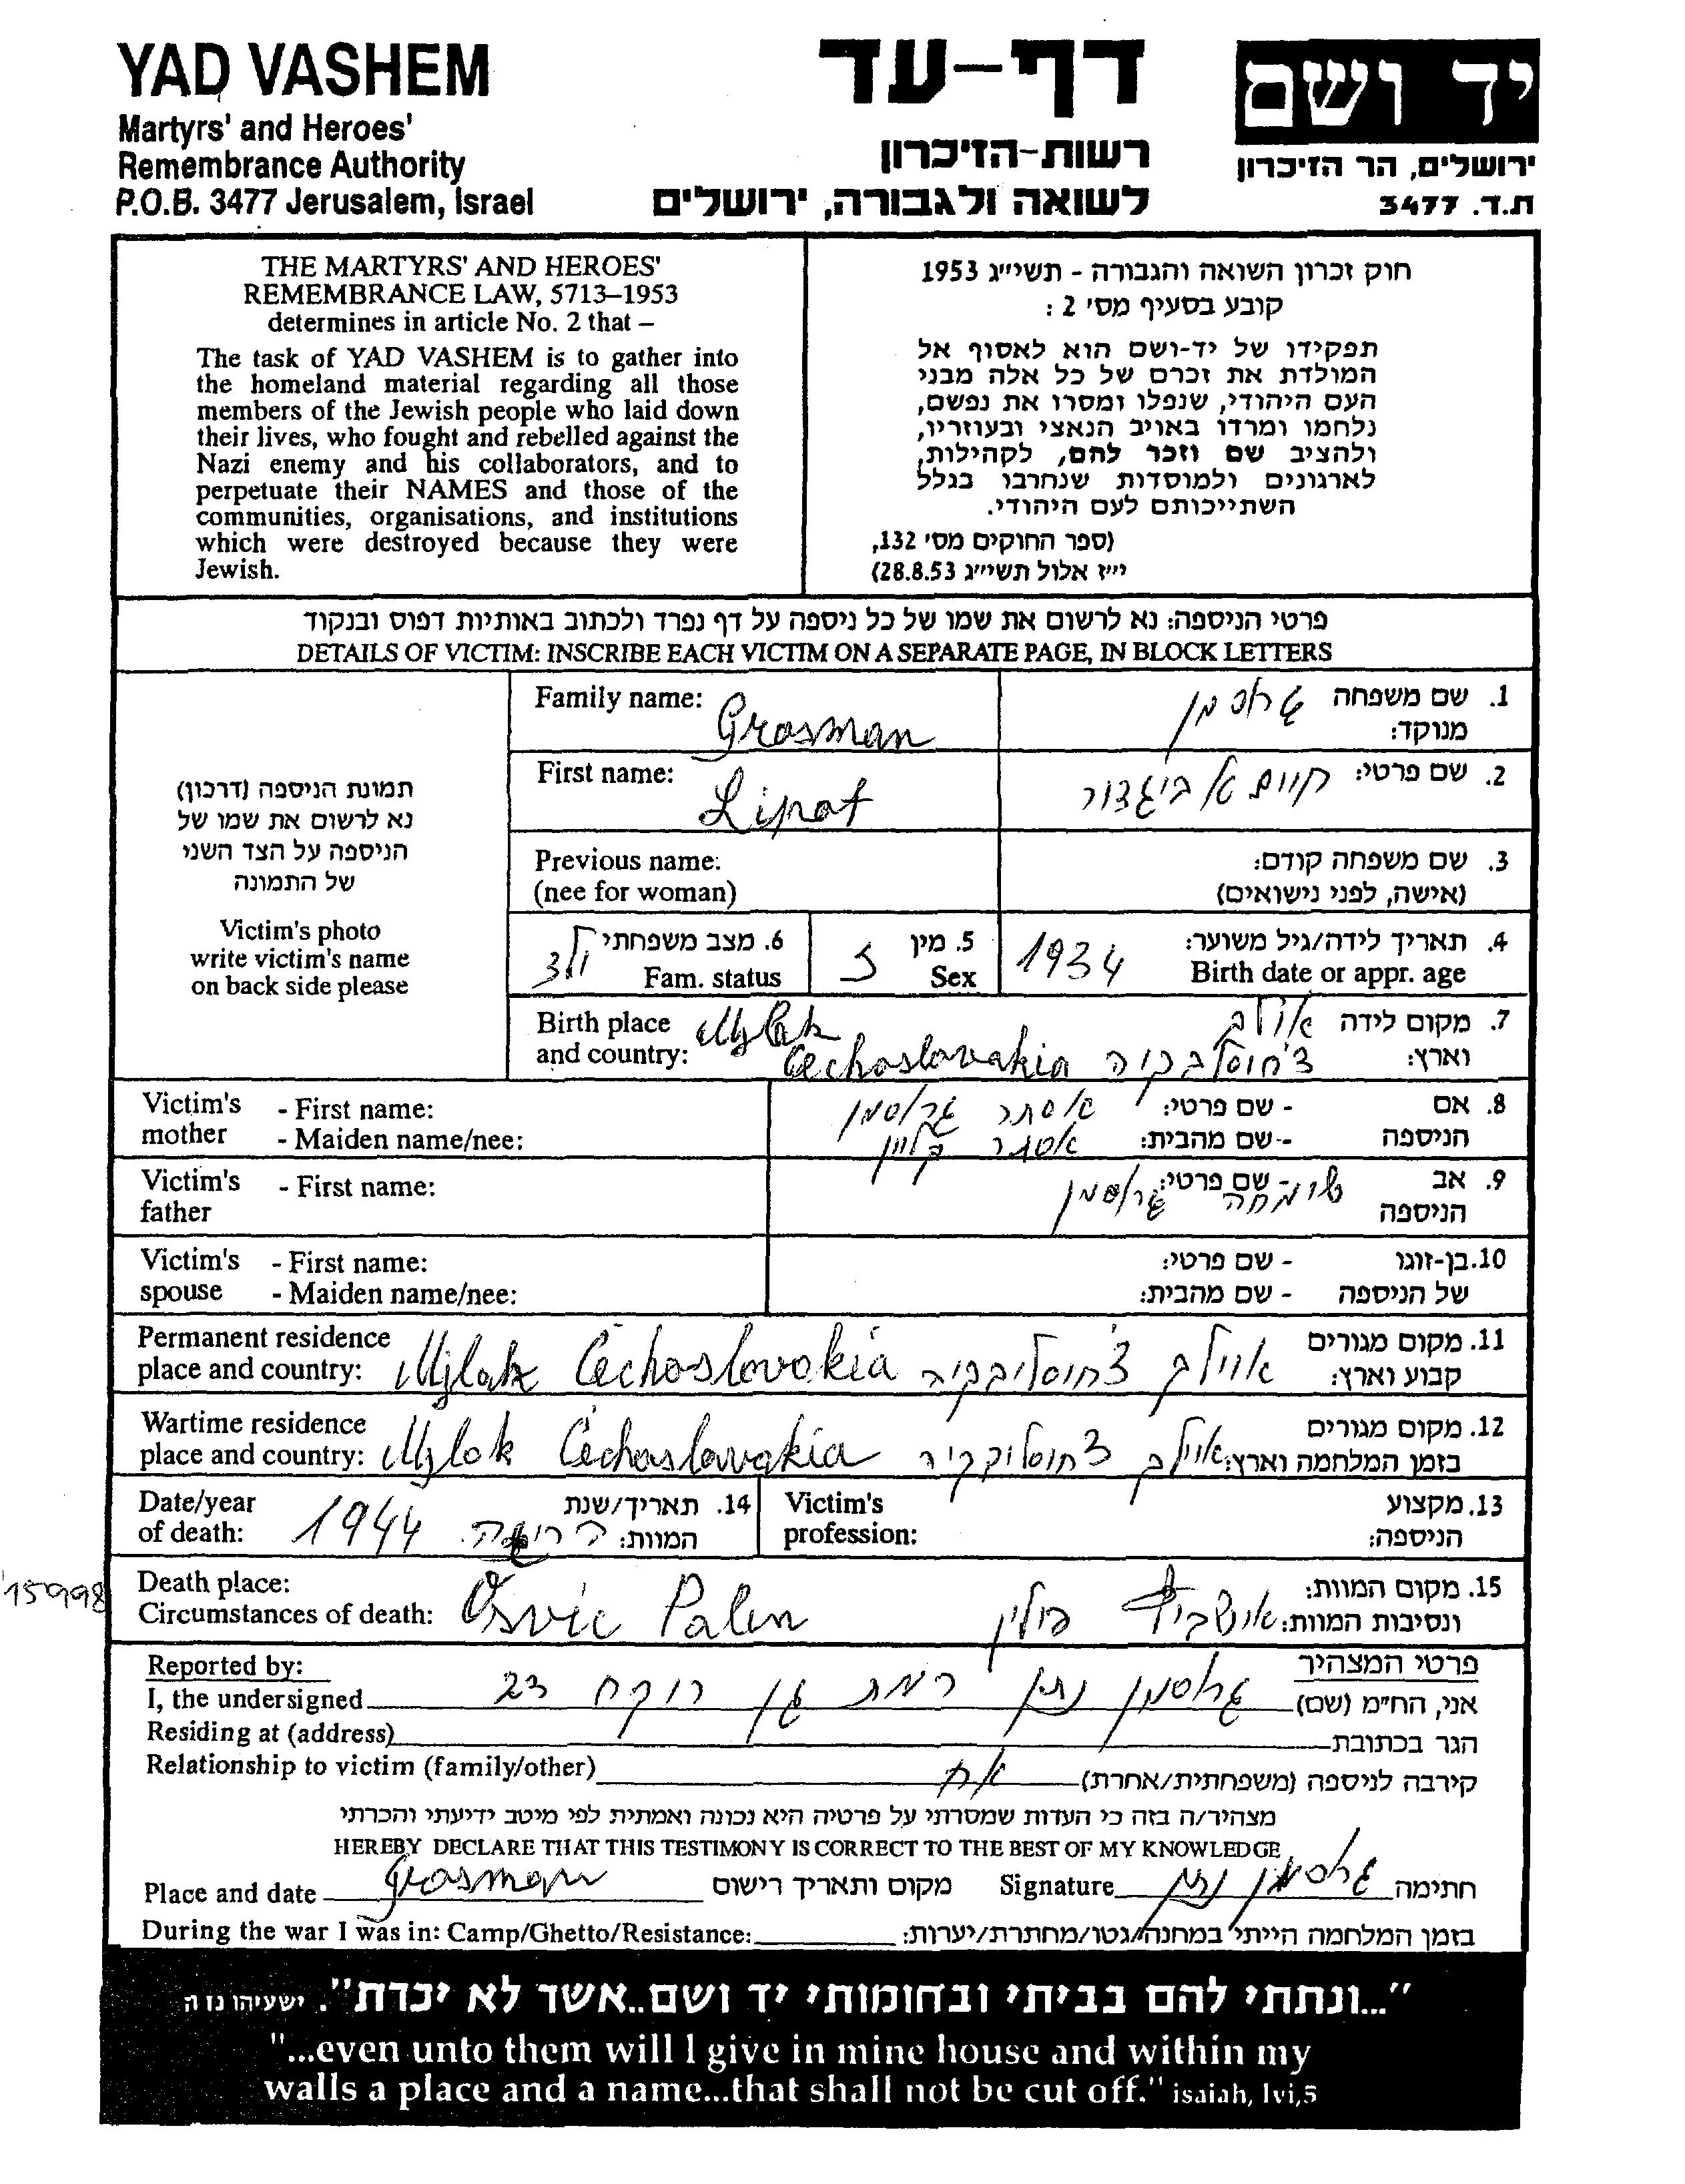 YAD VASHEM
Martyrs' and Heroes'
Remembrance Authority
P.O.B. 3477 Jerusalem, Israel
דף-עד
רשות-הזיכרון
לשואה ולגבורה, ירושלים
יד ושם
ירושלים, הר הזיכרון
ת.ד. 3477
THE MARTYRS' AND HEROES'
REMEMBRANCE LAW, 5713–1953
determines in article No. 2 that –
The task of YAD VASHEM is to gather into
the homeland material regarding all those
members of the Jewish people who laid down
their lives, who fought and rebelled against the
Nazi enemy and his collaborators, and to
perpetuate their NAMES and those of the
communities, organisations, and institutions
which were destroyed because they were
Jewish.
חוק זכרון השואה והגבורה - תשי״ג 1953
קובע בסעיף מס' 2 :
תפקידו של יד-ושם הוא לאסוף אל
המולדת את זכרם של כל אלה מבני
העם היהודי, שנפלו ומסרו את נפשם,
נלחמו ומרדו באויב הנאצי ובעוזריו,
ולהציב שם וזכר להם, לקהילות,
לארגונים ולמוסדות שנחרבו בגלל
השתייכותם לעם היהודי.
(ספר החוקים מס' 132,
י״ז אלול תשי״ג 28.8.53)
פרטי הניספה: נא לרשום את שמו של כל ניספה על דף נפרד ולכתוב באותיות דפוס ובנקוד
DETAILS OF VICTIM: INSCRIBE EACH VICTIM ON A SEPARATE PAGE, IN BLOCK LETTERS
תמונת הניספה (דרכון)
נא לרשום את שמו של
הניספה על הצד השני
של התמונה
Victim's photo
write victim's name
on back side please
Family name: Grosman
1. שם משפחה גרוסמן
מנוקד:
First name: Lipot
2. שם פרטי: חיים אביגדור
Previous name:
(nee for woman)
3. שם משפחה קודם:
(אישה, לפני נישואים)
4. תאריך לידה/גיל משוער:
Birth date or appr. age 1934
5. מין ז
Sex
6. מצב משפחתי ילד
Fam. status
Birth place
and country: Čechoslovakia
7. מקום לידה
וארץ:
Victim's mother - First name:
- Maiden name/nee:
8. אם - שם פרטי: אסתר גרוסמן
הניספה - שם מהבית: אסתר קליין
Victim's father - First name:
9. אב - שם פרטי: שימחה גרוסמן
הניספה
Victim's spouse - First name:
- Maiden name/nee:
10. בן-זוגו - שם פרטי:
של הניספה - שם מהבית:
Permanent residence
place and country: Čechoslovokia
11. מקום מגורים
קבוע וארץ:
Wartime residence
place and country: Čechoslovakia
12. מקום מגורים
בזמן המלחמה וארץ:
Date/year
of death: 1944
14. תאריך/שנת
המוות:
Victim's
profession:
13. מקצוע
הניספה:
159998
Death place:
Circumstances of death: Osvic Polin
15. מקום המוות:
ונסיבות המוות: אושביץ פולין
Reported by:
פרטי המצהיר
I, the undersigned
אני, הח״מ (שם) גרוסמן נתן רמת גן רוקח 23
Residing at (address)
הגר בכתובת
Relationship to victim (family/other)
קירבה לניספה (משפחתית/אחרת) אח
מצהיר/ה בזה כי העדות שמסרתי על פרטיה היא נכונה ואמתית לפי מיטב ידיעתי והכרתי
HEREBY DECLARE THAT THIS TESTIMONY IS CORRECT TO THE BEST OF MY KNOWLEDGE
Place and date Grosman מקום ותאריך רישום
Signature גרוסמן נתן חתימה
During the war I was in: Camp/Ghetto/Resistance:
בזמן המלחמה הייתי במחנה/גטו/מחתרת/יערות:
"...ונתתי להם בביתי ובחומותי יד ושם..אשר לא יכרת". ישעיהו נו ה
"...even unto them will I give in mine house and within my
walls a place and a name...that shall not be cut off." isaiah, lvi,5